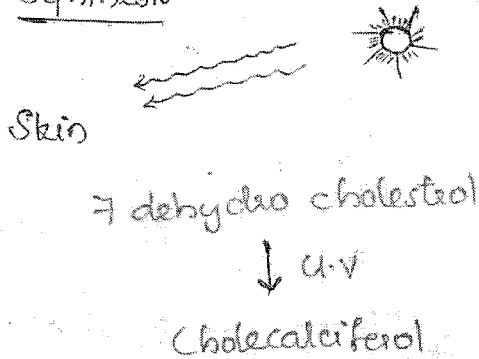 Synthesis
Skin
7 dehydro cholestrol
U.V
Cholecalciferol